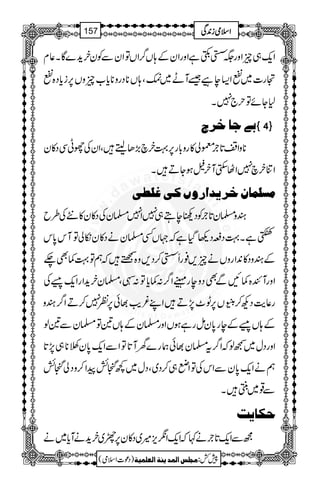 157 اسلامی زندگی
ایک ہی چیز اور جگہ سستی بکتی ہے اور ان کے ہاں گراں تو ان سے کون خریدے گا۔ عام
تجارت میں نفع ایسا چاہیے جیسے آٹے میں نمک، ہاں نادر و نایاب چیزوں پر زیادہ نفع
لیا جائے تو حرج نہیں۔
{4} بے جا خرچ
ناواقف تاجر معمولی کاروبار پر بہت خرچ بڑھا لیتے ہیں، ان کی چھوٹی سی دکان
اتنا خرچ نہیں اٹھا سکتی آخر فیل ہو جاتے ہیں۔
مسلمان خریداروں کی غلطی
ہندو مسلمان تاجر کو دیکھنا چاہتے ہی نہیں انہیں مسلمان کی دکان کانٹے کی طرح
کھٹکتی ہے۔ بہت دفعہ دیکھا گیا ہے کہ جہاں کسی مسلمان نے دکان نکالی تو آس پاس
کے ہندو دکانداروں نے چیزیں فوراً سستی کر دیں وہ سمجھتے ہیں کہ ہم تو بہت کما بھی چکے
اور آئندہ کمائیں گے بھی دو چار مہینے اگر نہ کمایا تو نہ سہی، مسلمان خریدار ایک پیسے کی
رعایت دیکھ کر بنیوں پر ٹوٹ پڑتے ہیں اپنے غریب بھائی پر نظر نہیں کرتے اگر ہندو
کے ہاں پیسے کے چار پان مل رہے ہوں اور مسلمان کے ہاں تین تو مسلمان سے تین لو
اور دل میں سمجھ لو کہ اگر یہ مسلمان بھائی ہمارے گھر آتا تو اسے ایک پان کھلانا ہی پڑتا
ہم نے ایک پان سے اس کی تواضع ہی کر دی، دل میں کچھ گنجائش پیدا کرو دلی گنجائش
سے قومیں بنتی ہیں۔
حکایت
مجھ سے ایک تاجر نے کہا کہ ایک انگریز میری دکان پر چھتری خریدنے آیا میں نے
پیش کش: مجلس المدینۃ العلمیۃ (دعوت اسلامی)